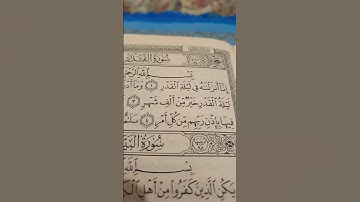 سُورَةُ القَدْرِ
بِسْمِ اللَّهِ الرَّحْمَٰ
إِنَّا أَنزَلْنَاهُ فِي لَيْلَةِ الْقَدْرِ ۝ وَمَا أَدْ
لَيْلَةُ الْقَدْرِ خَيْرٌ مِّنْ أَلْفِ شَهْرٍ ۝
فِيهَا بِإِذْنِ رَبِّهِم مِّن كُلِّ أَمْرٍ ۝ سَلَٰمٌ
سُورَةُ البَيِّ
بِسْمِ اللَّهِ
يَكُنِ الَّذِينَ كَفَرُوا مِنْ أَهْلِ الْكِ